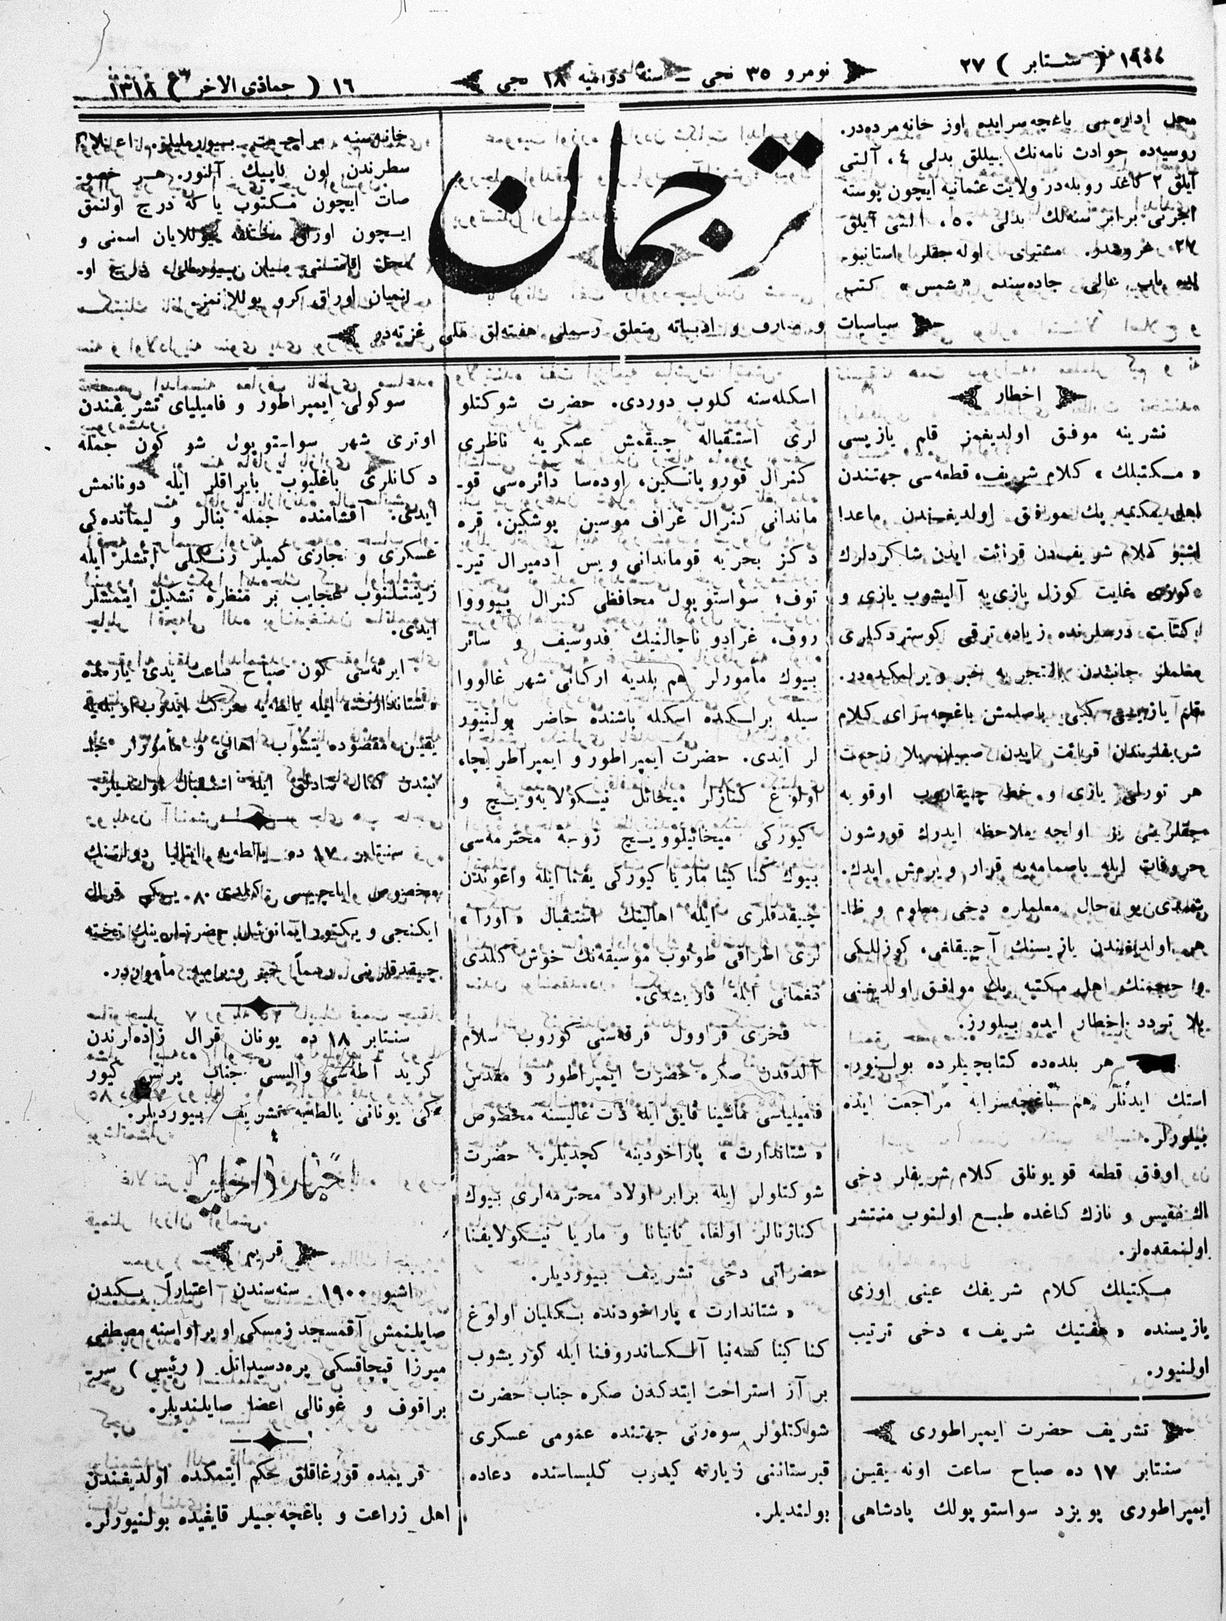 ١٩٠٠ ( سنتابر ) ٢٧
نومرو ٣٥ نجی — سنه دوامیه ١٨ نجی
١٦ ( جماذی الاخر ) ١٣١٨
محل اداره‌سی باغچه‌سرایده اوز خانه‌مزده‌در.
روسیه‌ده حوادث نامه‌نك ییللق بدلی ٤، آلتی
آیلق ٢ كاغد روبله‌در ولایت عثمانیه ایچون پوسته
اجرتی برابر سنه‌لك بدلی ٥٠، آلتی آیلق
اوله جقلر استانبو-
لده باب عالی جاده‌سنده «شمس» كتب
ترجمان
خانه‌سنه مراجعت بیورملیلر. اعلانك
سطرندن اون كاپیك آلنور. هر خصو-
صات ایچون مكتوب یا كه درج اولنمق
ایچون اوراق مختلفه یوللایان اسمنی و
محل اقامتنی بیان بیورملی. درج او-
لنمیان اوراق كرو یوللانمز.
سیاسیات و معارف و ادبیاته متعلق رسملی هفته‌لق ملی غزته‌در
اخطار
نشرینه موفق اولدیغمز قلم یازیسی
« مكتبلك » كلام شریف، قطعه‌سی جهتندن
اهل مكتبه پك موافق اولدیغندن ماعدا!
اشبو كلام شریفدن قرائت ایدن شاكردلرك
كوزی غایت كوزل یازی‌یه آلیشوب یازی و
كتابت درسلرنده زیاده ترقی كوستردكلری
معلملر جانبدن التجربه خبر ویرلمكده‌در.
قلم یازیسی كبی باصلمش باغچه‌سرای كلام
شریفلرندن قرائت ایدن صبیان بلا زحمت
هر تورلی یازی و خط چیقاروب اوقویه
جقلرینی بز اولجه ملاحظه ایدرك قورشون
حروفات ایله باصمامه‌یه قرار ویرمش ایدك.
شمدی بو حال معلملره دخی معلوم و ظا-
هر اولدیغندن یازیسنك آچیقلغی، كوزللكی
و حجمنك اهل مكتبه پك موافق اولدیغنی
بلا تردد اخطار ایده بیلورز.
هر بلده‌ده كتابچیلرده بولنور.
استك ایدنلر هم باغچه‌سرایه مراجعت ایده
بیلورلر.
اوفق قطعه قویونلق كلام شریفلر دخی
اك نفیس و نازك كاغده طبع اولنوب منتشر
اولنمقده‌لر.
مكتبلك كلام شریفك عینی اوزی
یازیسنده « هفتیك شریف » دخی ترتیب
اولنیور.
تشریف حضرت ایمپراطوری
سنتابر ١٧ ده صباح ساعت اونه یقین
ایمپراطوری پویزد سواستوپولك پادشاهی
اسكله‌سنه كلوب دوردی. حضرت شوكتلو
لری استقباله چیقمش عسكریه ناظری
كنرال قوروپاتكین، اوده‌سا دائره‌سی قو-
ماندانی كنرال غراف موسین پوشكین، قره
دكز بحریه قوماندانی ویس آدمیرال تیر-
توف؛ سواستوپول محافظی كنرال پیوووا
روف، غرادو ناچالنیك فدوسیف و سائر
بیوك مأمورلر هم بلدیه اركانی شهر غالووا
سیله براسكده اسكله باشنده حاضر بولنیور
لر ایدی. حضرت ایمپراطور و ایمپراطریچه،
اولوغ كنازلر میخائل نیكولایه‌ویچ و
كیوركی میخائیلوویچ زوجهٔ محترمه‌سی
بیوك كناكینا ماریا كیوركی یفنا ایله واغوندن
چیقدقلری ایله اهالینك استقبال « اورا »
لری اطرافی طوتوب موسیقه‌نك خوش كلدی
نغماتی ایله قاریشدی.
فخری قراوول فرقه‌سنی كوروب سلام
آلدقدن صكره حضرت ایمپراطور و مقدس
فامیلیاسی ماشینا قایق ایله ذات عالیسنه مخصوص
« شتاندارت » پاراخودینه كچدیلر. حضرت
شوكتلولر ایله برابر اولاد محترمه‌لری بیوك
كناژنالر اولغا، تاتیانا و ماریا نیكولایفنا
حضراتی دخی تشریف بیوردیلر.
« شتاندارت » پاراخودنده بكلیان اولوغ
كناكینا كسه‌نیا آلكساندروفنا ایله كوریشوب
بر آز استراحت ایتدكدن صكره جناب حضرت
شوكتلولر سوه‌رنی جهتنده عمومی عسكری
قبرستاننی زیارته كیدرب كلیساسنده دعاده
بولندیلر.
سوكولی ایمپراطور و فامیلیای تشریفندن
اوتری شهر سواستوپول شو كون جمله
دكانلری باغلیوب بایراقلر ایله دونانمش
ایدی. آقشامنده جمله بنالر و لیمانده‌كی
عسكری و تجاری كمیلر رنكلی آتشلر ایله
زینتلنوب عجایب بر منظره تشكیل ایتمشلر
ایدی.
ایرته‌سی كون صباح ساعت یدی یارمده
« شتاندارت » ایله یالطه‌یه حركت ایدوب اویله‌یه
یقین مقصوده یتشوب اهالی و مأمورلر جا-
نبندن كمال شادلق ایله استقبال اولندیلر.
سنتابر ١٨ ده یالطه‌یه ایتالیا دولتنك
مخصوص ایلچیسی كلدی. یكی قرال
ایكنجی ویكتور ایمانوئیل حضرتلرینك تخته
چیقدقلرینی رسماً خبر ویرمیه مأموردر.
سنتابر ١٨ ده یونان قرال زاده‌لرندن
كرید اطه‌سی والیسی جناب پرنس كیور
كی یونانی یالطه‌یه تشریف بیوردیلر.
اخبار داخلیه
قریم
اشبو ١٩٠٠ سنه‌سندن اعتباراً یكیدن
صایلنمش آقمسجد زمسكی اوپراواسنه مصطفی
میرزا قپچاقسكی پره‌دسیداتل ( رئیس ) سر-
براقوف و غوفالی اعضا صایلندیلر.
قریمده قورغاقلق حكم ایتمكده اولدیغندن
اهل زراعت و باغچه‌جیلر قایغیده بولنیورلر.